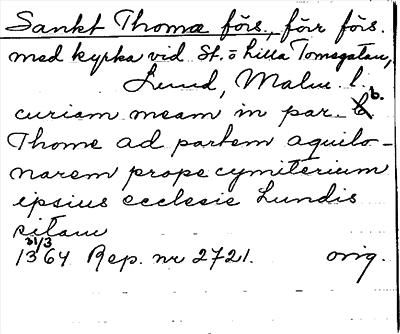 Sankt Thomæ förs., förr förs.
med kyrka vid St. o Lilla Tomegatan,
Lund, Malm. l.
curiam meam in par. b.
Thome ad partem aquilo-
narem prope cymiterium
ipsius ecclesie Lundis
sitam
31/3
1364 Rep. nr 2721. orig.